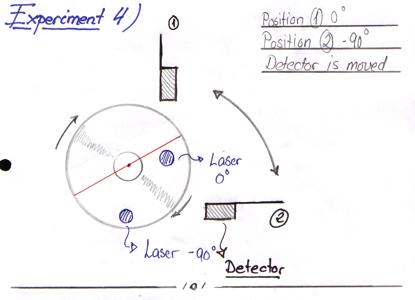 Experiment 4)
①
Position ① 0°
Position ② -90°
Detector is moved
Laser
0°
②
Laser -90°
Detector